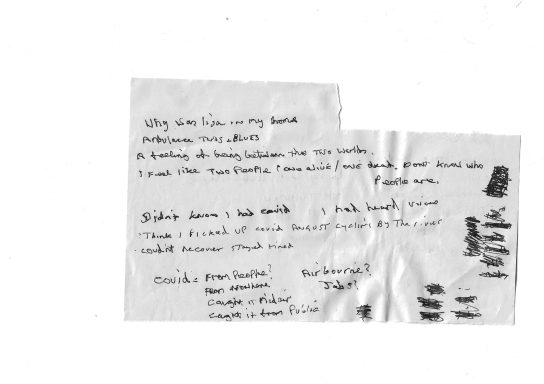 Why was lisa in my home
Ambulance Twos & BLUES
A feeling of being between the two worlds.
I Feel like TWO PEOPLE one alive / ONE death. Dont know who
People are.
Didn't know I had covid I had heard
Think I Picked UP covid AUGUST cycling By The river
couldn't recover stayed tired
Covid: From People? Airbourne?
From Nowhere Jabs?
Caught it
caught it from Public